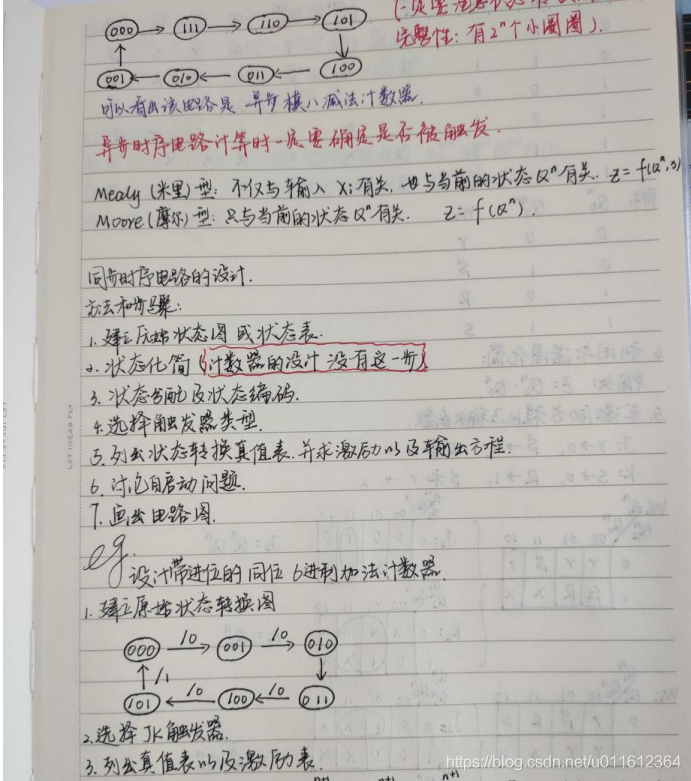 000 → 111 → 110 → 101
完整性: 有2ⁿ个小圈圈).
001 ← 010 ← 011 ← 100
可以看出该电路是 异步模八减法计数器.
异步时序电路计算时一定要确定是否被触发.
Mealy (米里) 型: 不仅与输入 Xi 有关, 也与当前的状态 Qⁿ 有关. Z = f(Qⁿ,
Moore (摩尔) 型: 只与当前的状态 Qⁿ 有关. Z = f(Qⁿ).
同步时序电路的设计.
方法和步骤:
1. 建立原始状态图 或状态表.
2. 状态化简 (计数器的设计 没有这一步)
3. 状态分配及状态编码.
4. 选择触发器类型.
5. 列出状态转换真值表. 并求激励以及输出方程.
6. 讨论自启动问题.
7. 画出电路图.
eg.
设计带进位的 同位 6进制加法计数器.
1. 建立原始状态转换图
000 /0 → 001 /0 → 010
101 ← /0 100 ← /0 011
/1
2. 选择 JK 触发器.
3. 列出真值表以及激励表.
n+1 n+1
https://blog.csdn.net/u011612364